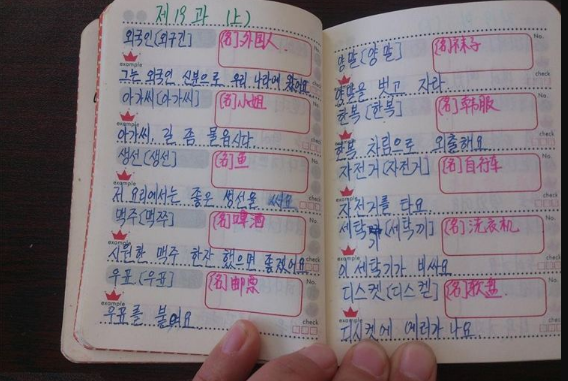 제19과 (上)
외국인 [외구긴] [名] 外国人.
example
그는 외국인 신분으로 우리 나라에 왔어요.
아가씨 [아가씨] [名] 小姐
example
아가씨, 길 좀 물읍시다.
생선 [생선] [名] 鱼
example
저 요리에서는 좋은 생선을 써요
맥주 [맥쭈] [名] 啤酒
example
시원한 맥주 한잔 했으면 좋겠어요
우표 [우표] [名] 邮票
example
우표를 붙여요.
check
No.
양말 [양말] [名] 袜子
check
양말을 벗고 자라.
한복 [한복] [名] 韩服
한복 차림으로 외출해요
자전거 [자전거] [名] 自行车
자전거를 타요
세탁기 [세탁끼] [名] 洗衣机
example
이 세탁기가 비싸요
디스켓 [디스켇] [名] 软盘.
example
디스켓에 에러가 나요.
check